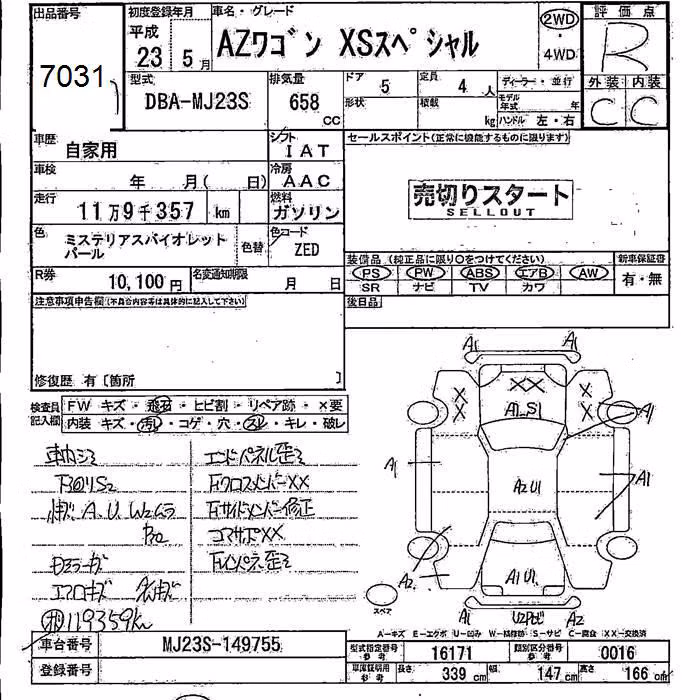 出品番号
7031
初度登録年月
平成
23 5 月
車名・グレード
AZワゴン XSスペシャル
2WD
・
4WD
評価点
R
外装 内装
C C
型式
DBA-MJ23S
排気量
658 CC
ドア 5
形状
定員 4 人
積載 kg
ディーラー・並行
モデル年式 年
ハンドル 左・右
車歴
自家用
シフト
IAT
車検
年 月( 日)
冷房
AAC
走行
11万9千357 km
燃料
ガソリン
色
ミステリアスバイオレット
パール
色替
色コード
ZED
R券
10,100円
名変通知期限
月 日
セールスポイント(正常に機能するものに限ります)
売切りスタート
SELLOUT
装備品(純正品に限り○をつけてください)
新車保証書
PS PW ABS エアB AW
SR ナビ TV カワ
有・無
後日品
注意事項申告欄(不具合内容等は具体的に記入して下さい)
修復歴 有〔箇所 〕
検査員
記入欄
FW キズ・飛石・ヒビ割・リペア跡・×要
内装 キズ・汚レ・コゲ・穴・スレ・キレ・破レ
下回りS2
A.U W2ムラ
エンドパネル歪ミ
FクロスメンバーXX
Fサイドメンバー修正
コアサポXX
Fインパネ歪ミ
エアロキズ
119359km
A1
A1
XX
X
X
X
X
A1.S1
A1
A1
A2U1
A1
A2
A1U1
スペア
A1
U2Pビ
A2
A-キズ E-エクボ U-凹み W-補修跡 S-サビ C-腐食 XX-交換済
車台番号
MJ23S-149755
登録番号
型式指定番号
参考
16171
類別区分番号
参考
0016
車庫証明用
参考
長さ 339 cm
幅 147 cm
高さ 166 cm